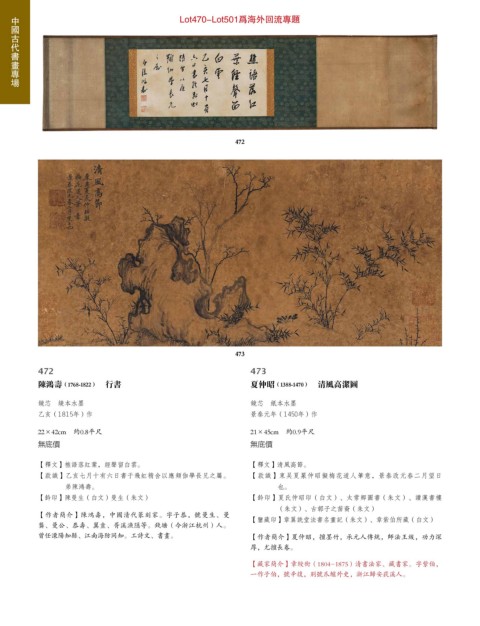 Lot470~Lot501爲海外回流專題
中國古代書畫專場
472
清風高節
473
472
陳鴻壽（1768-1822） 行書
鏡芯 絹本水墨
乙亥（1815年）作
22×42cm 約0.8平尺
無底價
【釋文】樵語落紅葉，經聲留白雲。
【款識】乙亥七月十有六日書于幾虹精舍以應頡伽學長兄之屬。
弟陳鴻壽。
【鈐印】陳曼生（白文）曼生（朱文）
【作者簡介】陳鴻壽，中國清代篆刻家。字子恭，號曼生、曼
曾任溧陽知縣、江南海防同知。工詩文、書畫。
473
夏仲昭（1388-1470） 清風高潔圖
鏡芯 紙本水墨
景泰元年（1450年）作
21×45cm 約0.9平尺
無底價
【釋文】清風高節。
【款識】東吳夏㫤仲昭擬梅花道人筆意，景泰改元春二月望日
也。
【鈐印】夏氏仲昭印（白文）、太常卿圖書（朱文）、謙謙書懷
（朱文）、古鄣子之留齋（朱文）
【鑒藏印】章氏紫伯所藏（白文）
【作者簡介】夏仲昭，擅墨竹，承元人傳統，師法王紱，功力深
厚，尤擅長卷。
【藏家簡介】章綬銜（1804~1875）清書法家、藏書家。字紫伯，
一作子伯，號辛復，別號爪鱸外史，浙江歸安荻溪人。